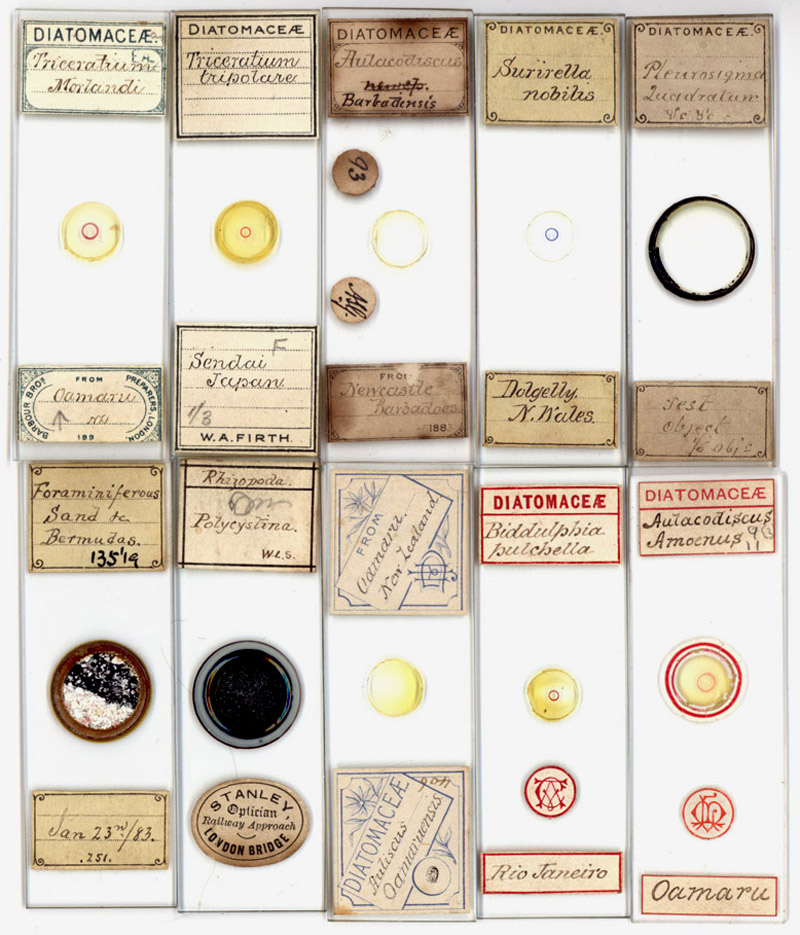 DIATOMACEÆ.
Triceratium
Morlandi
FROM
BARBOUR BROS PREPARERS, LONDON
Oamaru
NH
189
DIATOMACEÆ
Triceratium
tripolare
Sendai F
Japan
1/3
W.A. FIRTH.
DIATOMACEÆ
Aulacodiscus
Barbadensis
93
FROM
Newcastle
Barbadoes
188
DIATOMACEÆ.
Surirella
nobilis
Dolgelly.
N. Wales.
DIATOMACEÆ.
Pleurosigma
Quadratum
&c &c
Test
object
Foraminiferous
Sand &c
Bermudas.
135'19
Jan 23rd/83.
.251.
Rhizopoda.
Polycystina.
W.L.S.
STANLEY,
Optician
Railway Approach
LONDON BRIDGE
FROM
Oamaru.
New Zealand
400
DIATOMACEÆ
Auliscus
Oamaruensis
DIATOMACEÆ
Biddulphia
pulchella
Rio Janeiro
DIATOMACEÆ
Aulacodiscus
Amoenus 9
11
Oamaru